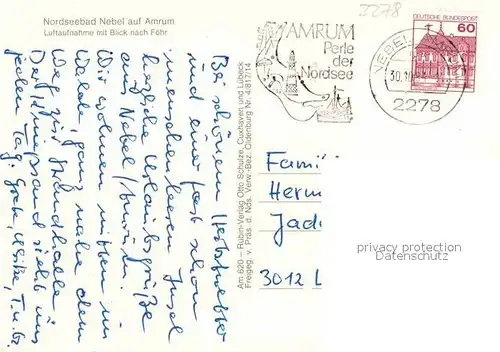 Nordseebad Nebel auf Amrum
Luftaufnahme mit Blick nach Föhr
2278
AMRUM
Perle
der
Nordsee
DEUTSCHE BUNDESPOST
60
NEBEL
30.10.
2278
Bei schönem Herbstwetter
und einer fast schon
menschenleeren Insel
herzliche Urlaubsgrüße
aus Nebel/Amrum.
Wir wohnen mitten im
Walde, ganz nahe dem
Weg zur Strandhalle.
Der Kniepsand sieht uns
jeden Tag.
Am 620 – Rubin-Verlag Otto Schulze, Cuxhaven und Lübeck
Freigeg. v. Präs. d. Nds. Verw.-Bez. Oldenburg Nr. 4/817/14
Fami
Herm
Jadi
3012 L
privacy protection
Datenschutz